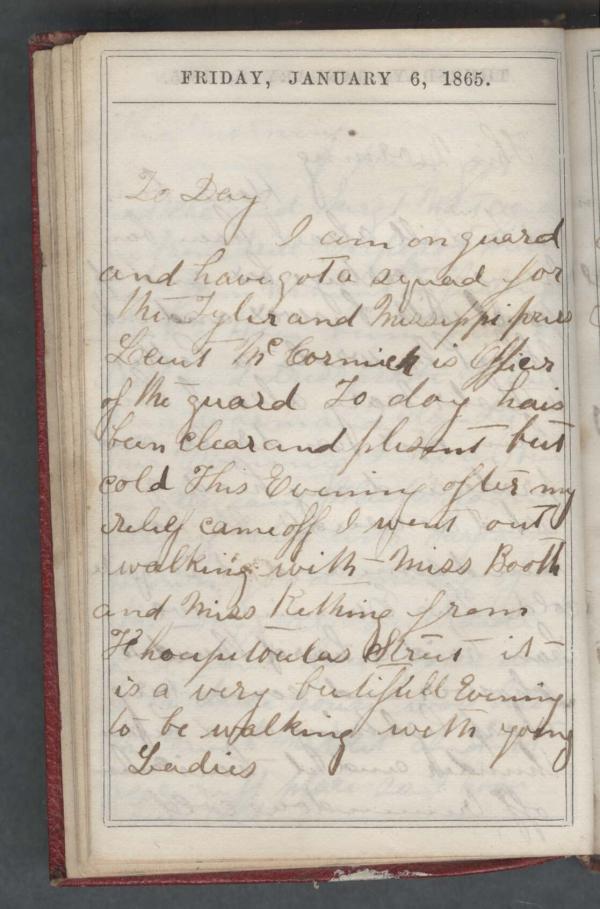 FRIDAY, JANUARY 6, 1865.
To Day
I am on guard
and have got a squad for
the Tyler and Missippi
Leiut Mc Cormick is Officer
of the guard To day hais
been clear and plesent but
cold This Evening after my
relief came off I went out
walking with Miss Booth
and Miss Rething from
Street it
is a very butifull Evening
to be walking with young
Ladies